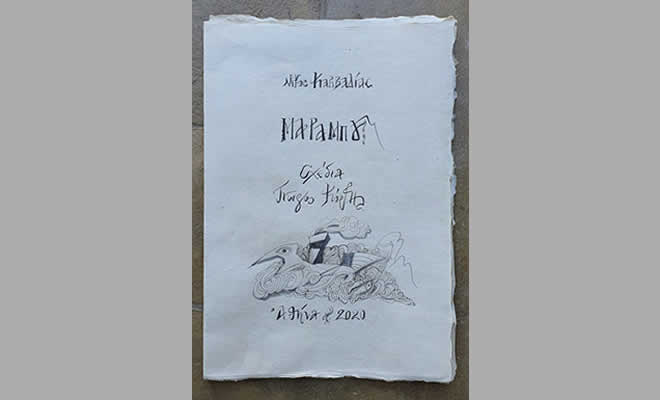 Νίκος Καββαδίας
ΜΑΡΑΜΠȢ
Σχέδια
Γιώργος Κόρδης
Ἀθήνα 2020